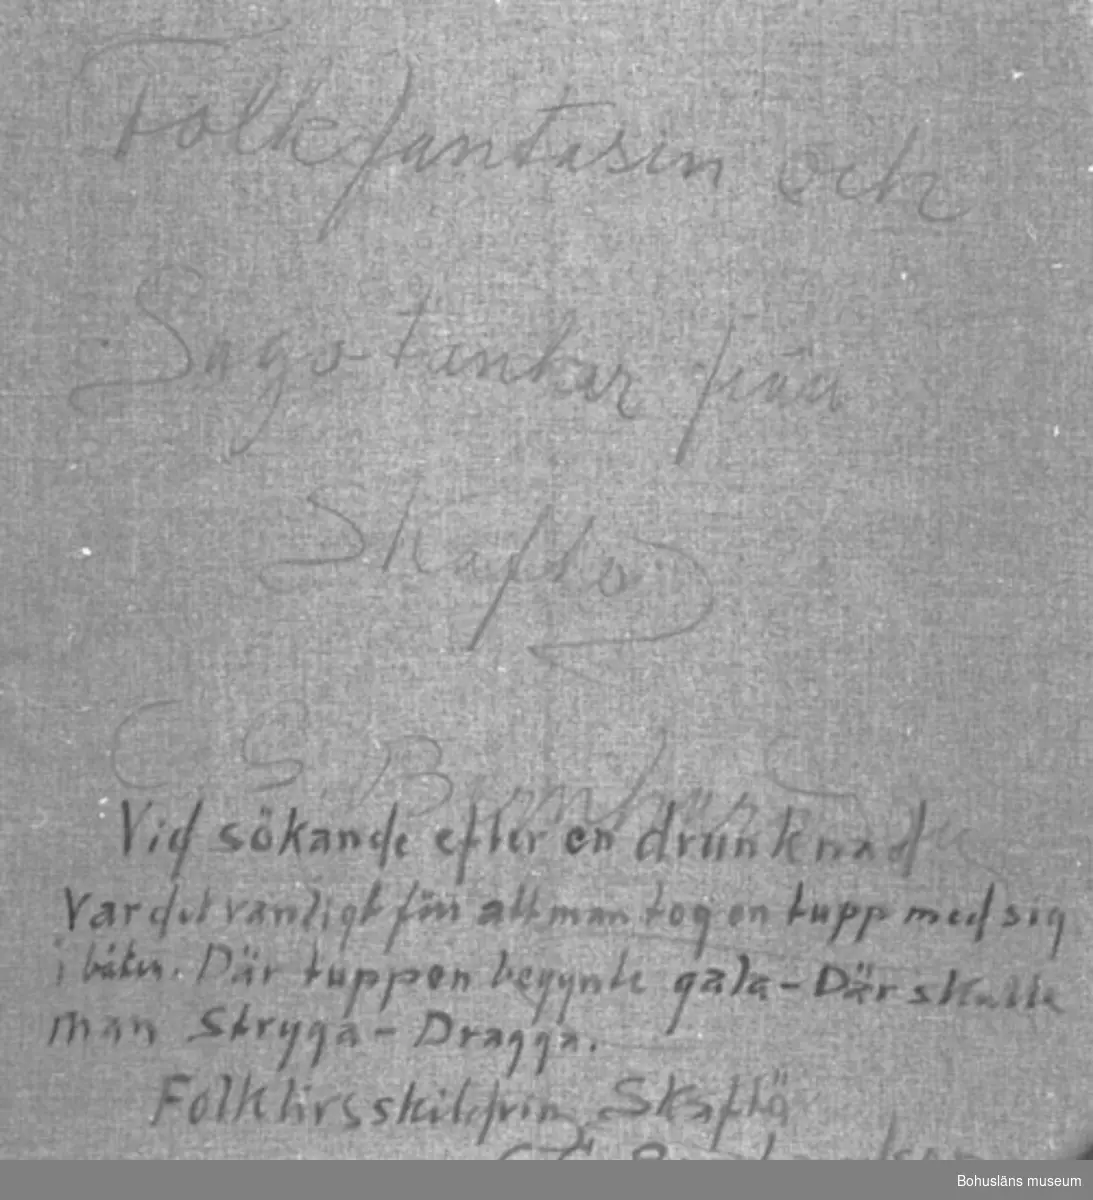 Folkfantasin och
Sagotankar från
Skaftö
C. G.
Vid sökande efter en drunknad
var det vanligt förr att man tog en tupp med sig
i båten. Där tuppen begynte gala - Där skulle
man Stryga - Dragga.
Folklivsskildrin Skaftö
Bohusläns museum